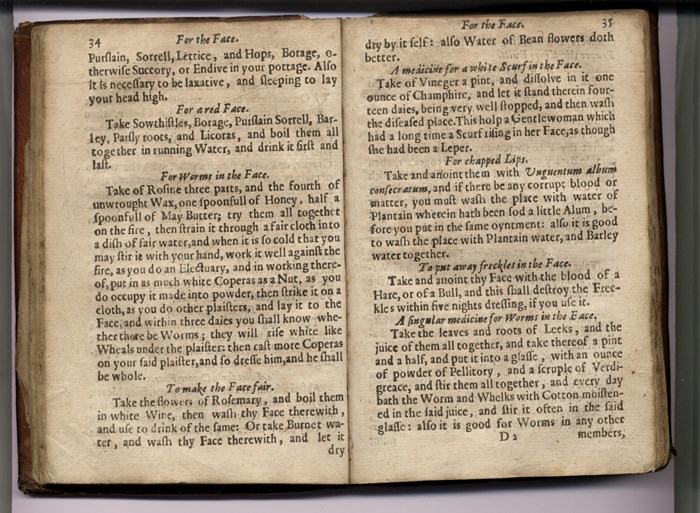 34
For the Face.
Purslain, Sorrell, Lettice, and Hops, Borage, o-
therwise Succory, or Endive in your pottage. Also
it is necessary to be laxative, and sleeping to lay
your head high.
For a red Face.
Take Sowthistles, Borage, Purslain Sorrell, Bar-
ley, Parsly roots, and Licoras, and boil them all
together in running Water, and drink it first and
last.
For Worms in the Face.
Take of Rosine three parts, and the fourth of
unwrought Wax, one spoonfull of Honey, half a
spoonfull of May Butter; try them all together
on the fire, then strain it through a fair cloth into
a dish of fair water, and when it is so cold that you
may stir it with your hand, work it well against the
fire, as you do an Electuary, and in working there-
of, put in as much white Coperas as a Nut, as you
do occupy it made into powder, then strike it on a
cloth, as you do other plaisters, and lay it to the
Face, and within three daies you shall know whe-
ther there be Worms; they will rise white like
Wheals under the plaister: then cast more Coperas
on your said plaister, and so dresse him, and he shall
be whole.
To make the Face fair.
Take the flowers of Rosemary, and boil them
in white Wine, then wash thy Face therewith,
and use to drink of the same: Or take Burnet wa-
ter, and wash thy Face therewith, and let it
dry
For the Face.
35
dry by it self: also Water of Bean flowers doth
better.
A medicine for a white Scurf in the Face.
Take of Vineger a pint, and dissolve in it one
ounce of Champhire, and let it stand therein four-
teen daies, being very well stopped, and then wash
the diseased place. This holp a Gentlewoman which
had a long time a Scurf rising in her Face, as though
she had been a Leper.
For chapped Lips.
Take and anoint them with Unguentum album
consecratum, and if there be any corrupt blood or
matter, you must wash the place with water of
Plantain wherein hath been sod a little Alum, be-
fore you put in the same oyntment: also it is good
to wash the place with Plantain water, and Barley
water together.
To put away freckles in the Face.
Take and anoint thy Face with the blood of a
Hare, or of a Bull, and this shall destroy the Frec-
kles within five nights dressing, if you use it.
A singular medicine for Worms in the Face.
Take the leaves and roots of Leeks, and the
juice of them all together, and take thereof a pint
and a half, and put it into a glasse, with an ounce
of powder of Pellitory, and a scruple of Verdi-
greace, and stir them all together, and every day
bath the Worm and Whelks with Cotton moisten-
ed in the said juice, and stir it often in the said
glasse: also it is good for Worms in any other
D 2
members,